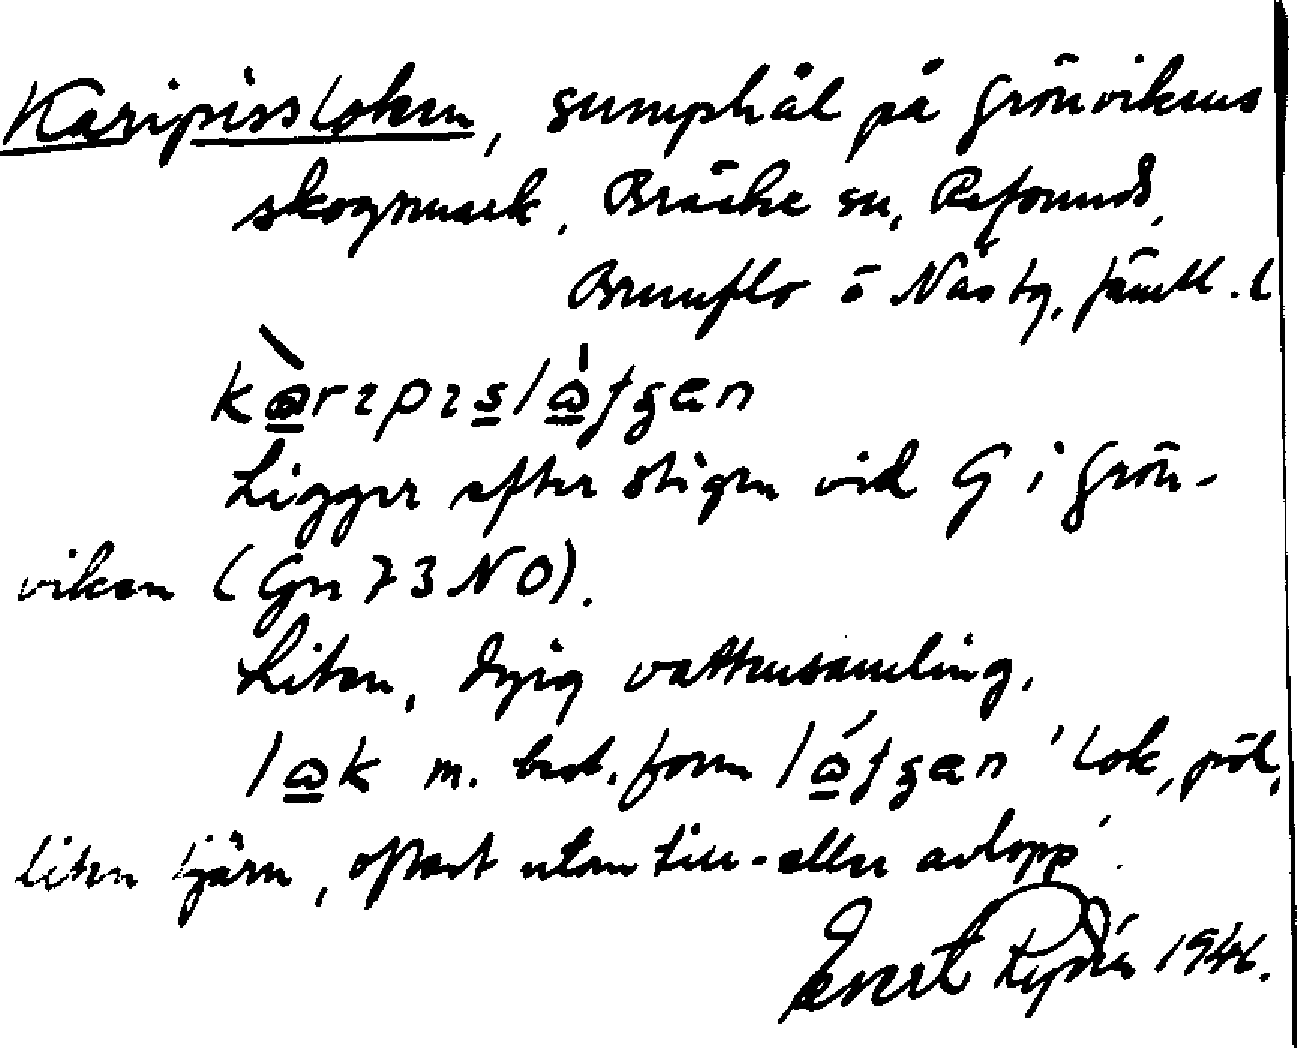 Karipissloken, sumphål på Grönvikens
skogsmark. Bräcke sn, Refsunds,
Brunflo o Näs tg, Jämtl. l
Ligger efter stigen vid G i Grön-
viken (Gn 73 NO).
Liten, dyig vattensamling.
m. best. form 'lok, pöl,
liten tjärn, oftast utan till- eller avlopp'.
Evert 1946.